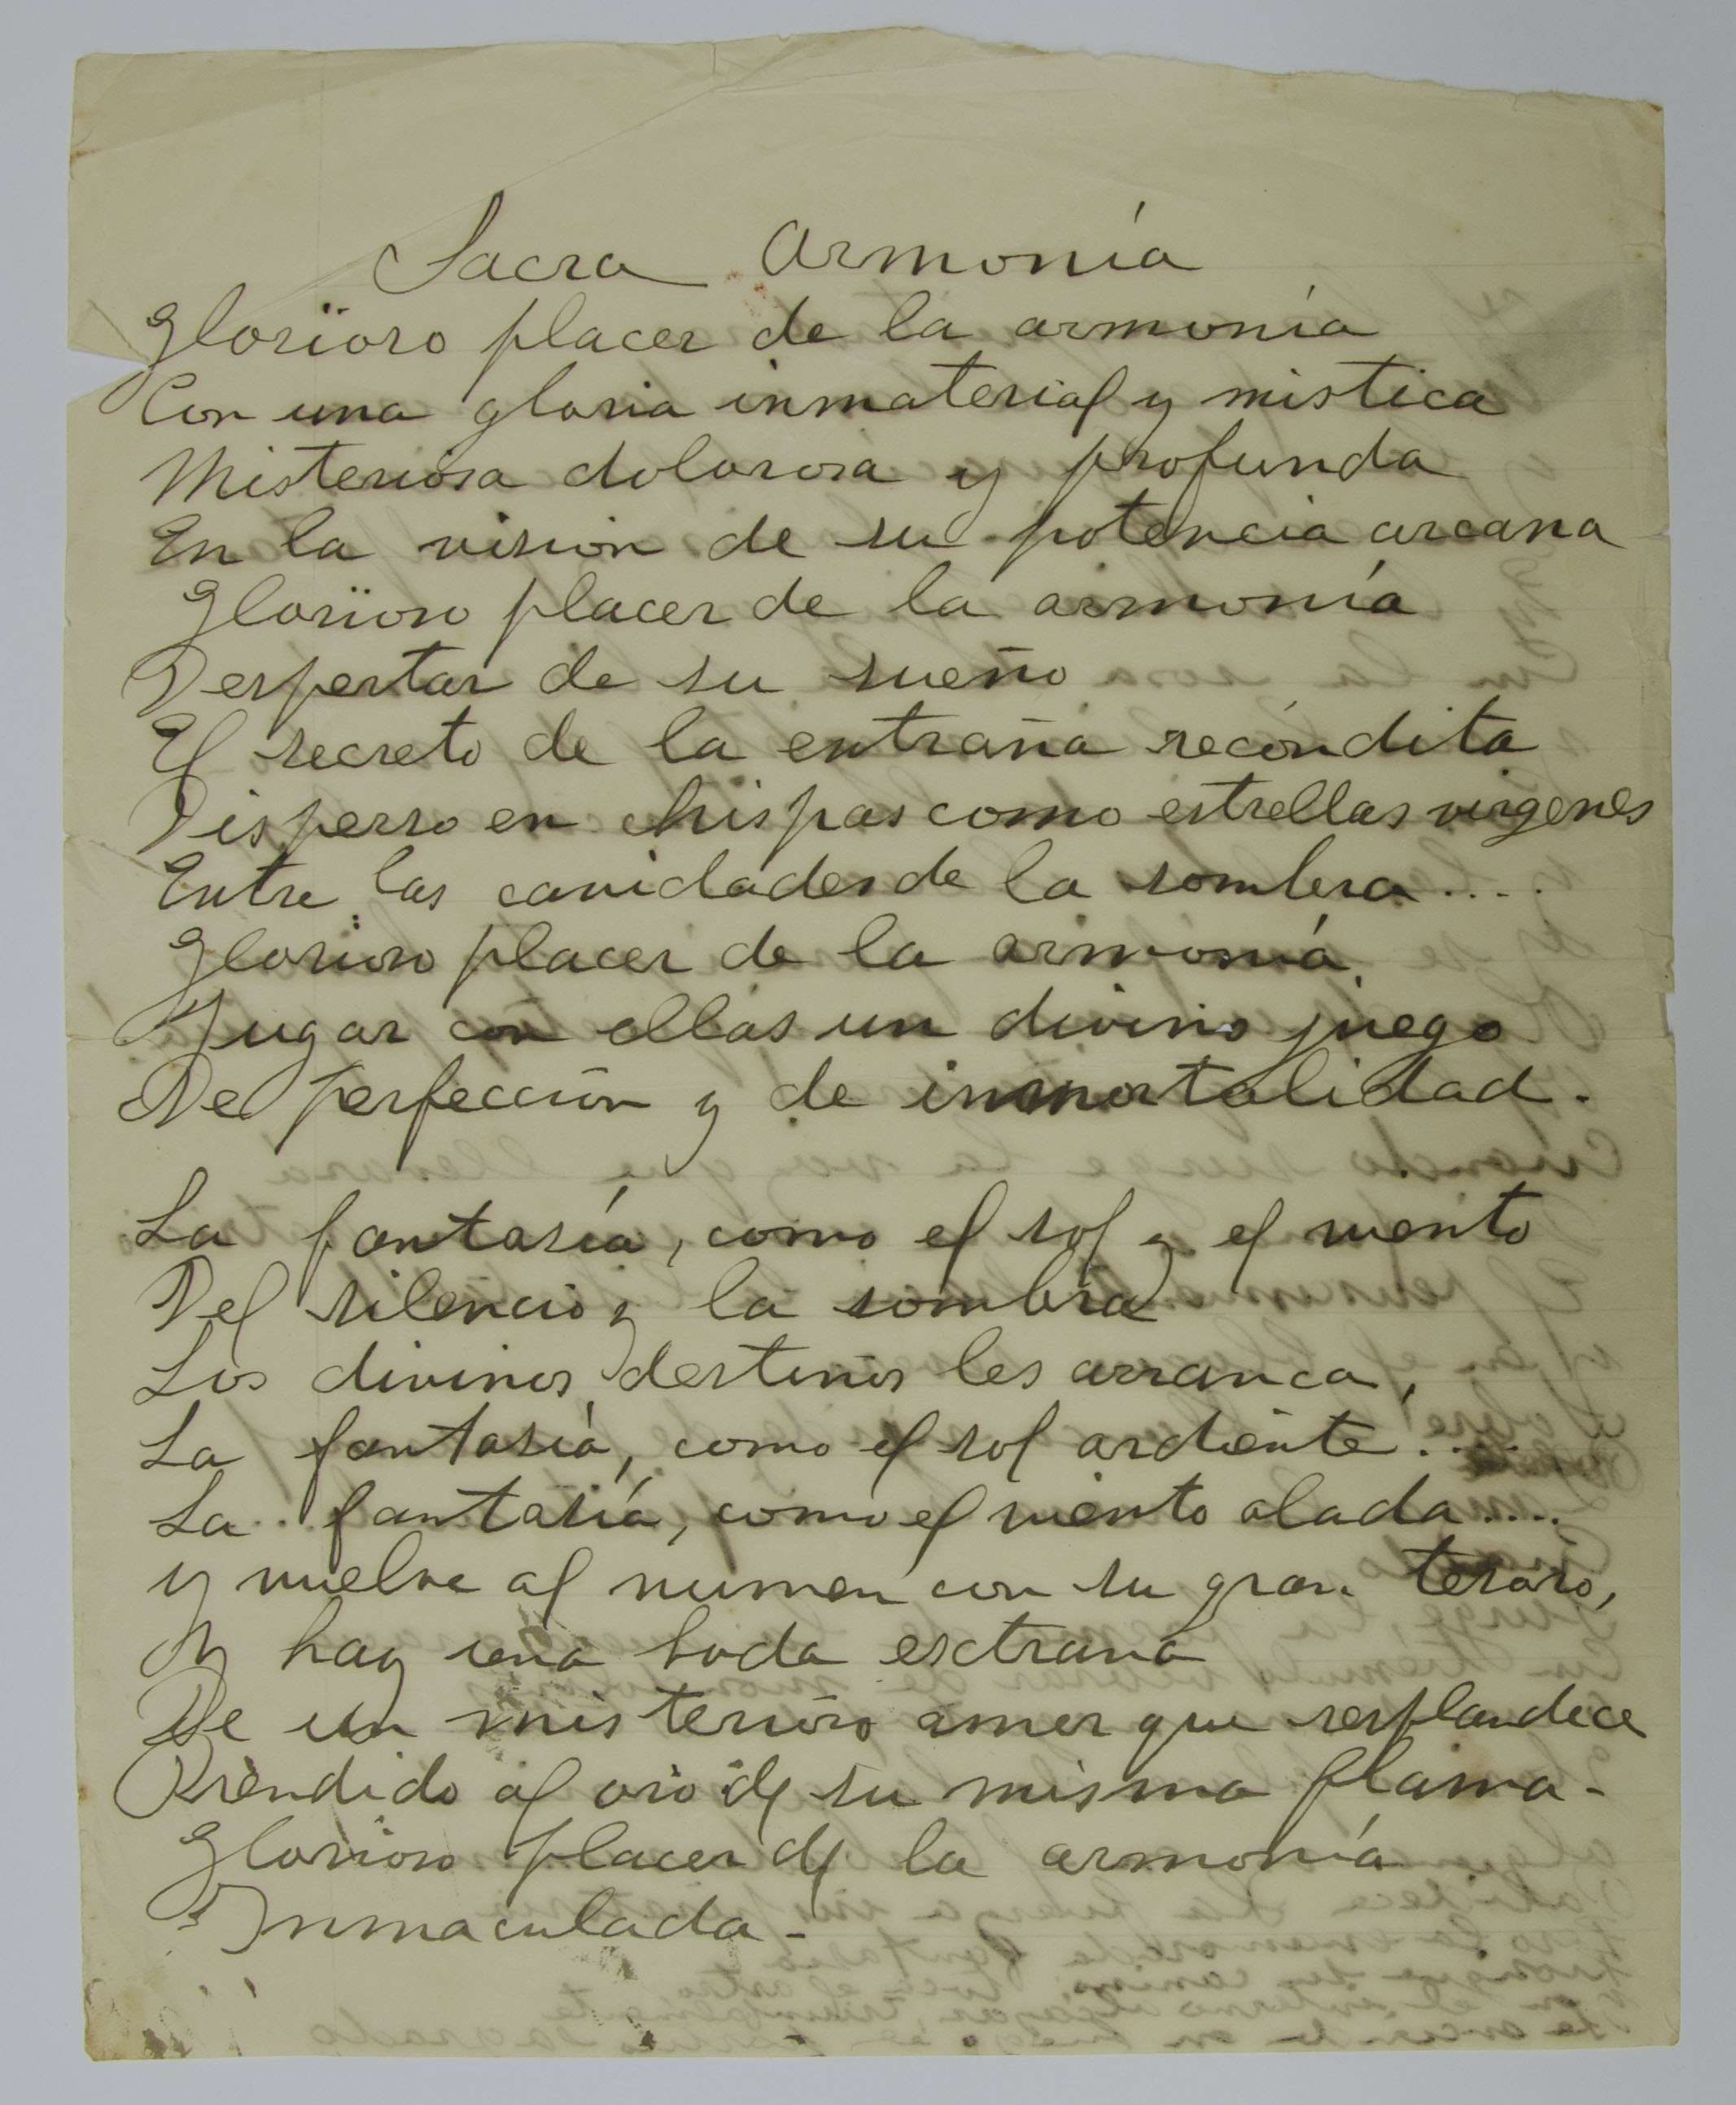 Sacra Armonía
Glorïoso placer de la armonía
Con una gloria inmaterial y mistica
Misteriosa dolorosa y profunda
En la vision de su potencia arcana
Glorïoso placer de la armonía
Despertar de su sueño
El secreto de la entraña recóndita
Disperso en chispas como estrellas virgenes
Entre las cavidades de la sombra....
Glorioso placer de la armonía
Jugar con ellas un divino juego
De perfección y de inmortalidad.
La fantasía, como el sol y el viento
Del silencio y la sombra
Los divinos destinos les arranca,
La fantasía, como el sol ardiente....
La fantasía, como el viento alada....
y vuelve al numen con su gran tesoro,
Y hay una boda extrana
De un misterioso amor que resplandece
Prendido al oro de su misma flama-
Glorioso placer de la armonía
Inmaculada-